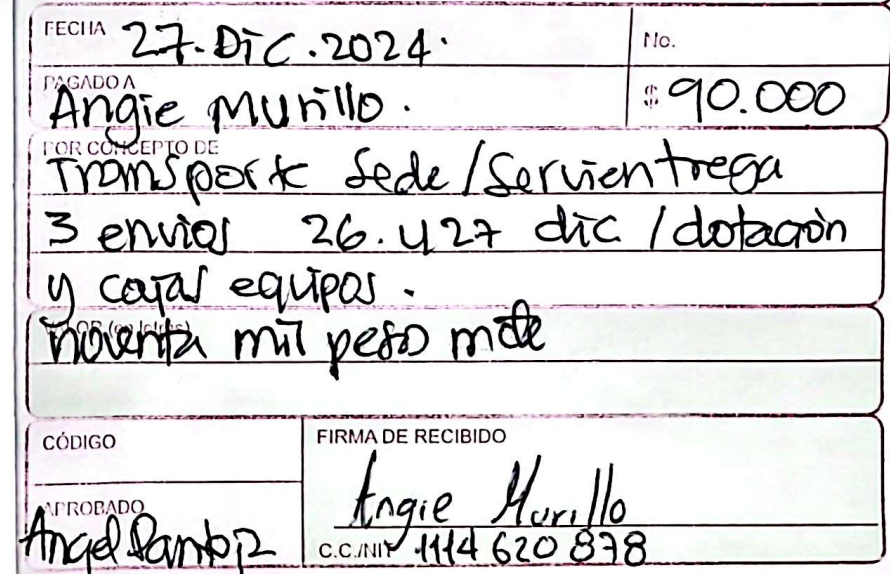 FECHA 27. Dic. 2024.
No.
PAGADO A
Angie Murillo.
$ 90.000
POR CONCEPTO DE
Transporte Sede / Servientrega
3 envios 26. y 27 dic / dotación
y cajas equipos.
VALOR (en letras)
noventa mil peso mcte
CÓDIGO
FIRMA DE RECIBIDO
Angie Murillo
APROBADO
Angel
C.C./NIT 1114 620 878